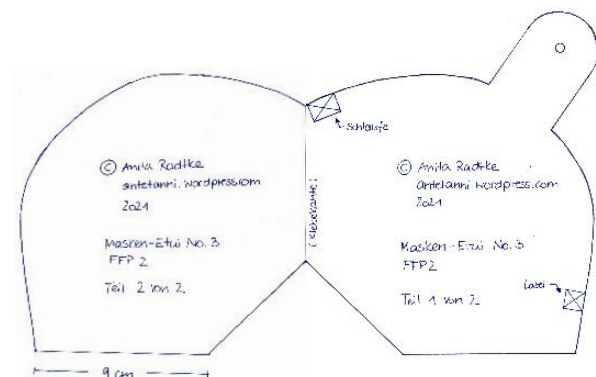 Schlaufe
© Anita Radtke
antetanni.wordpress.com
2021
Masken-Etui No. 3
FFP 2
Teil 2 von 2
9 cm
(Klebekante)
© Anita Radtke
antetanni.wordpress.com
2021
Masken-Etui No. 3
FFP2
Teil 1 von 2
Label